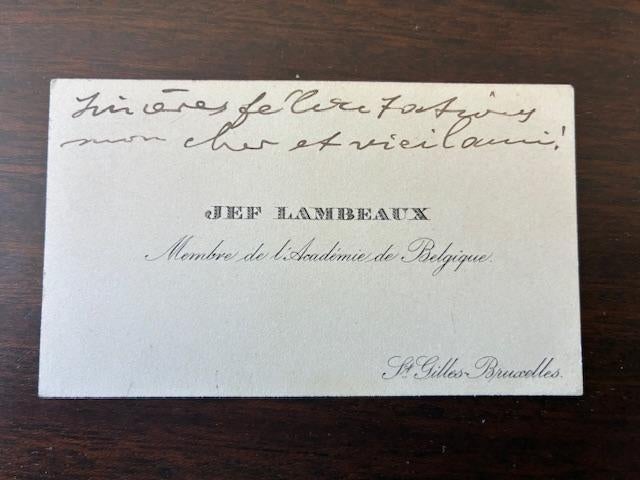 Sincères félicitations
mon cher et vieil ami!
JEF LAMBEAUX
Membre de l'Académie de Belgique.
St Gilles-Bruxelles.